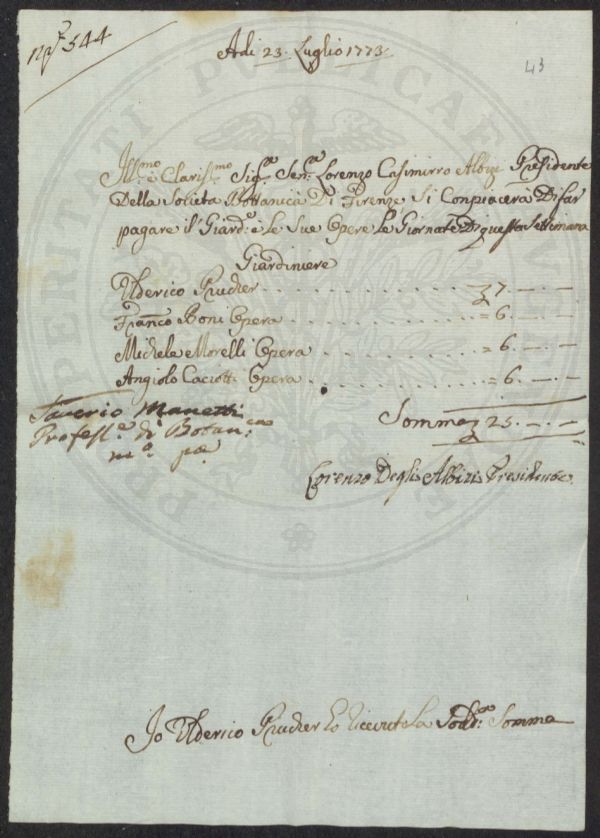 N.º 544
Adi 23. Luglio 1773
43
Ill.mo e Claris.mo Sig.re Sen.re Lorenzo Casimirro Albizi Presidente
Della Societa Bottanica Di Firenze Si Conpiacerà Di far
pagare il Giard.e e le Sue Opere le Giornate Di questa Settimana
Giardiniere
Ulderico Prucher . . . . . . . . . . . . £ 7. — . —
Fran.co Boni Opera . . . . . . . . . . . = 6. — . —
Michele Morelli Opera . . . . . . . . . . = 6. — . —
Angiolo Caciotti Opera . . . . . . . . . . = 6. — . —
Somma £ 25. — . —
Saverio Manetti
Profess.e di Botan.ca
m.o p.a
Lorenzo Degli Albizi Presidente
Io Ulderico Prucher ho ricevuto la Sodd.a Somma